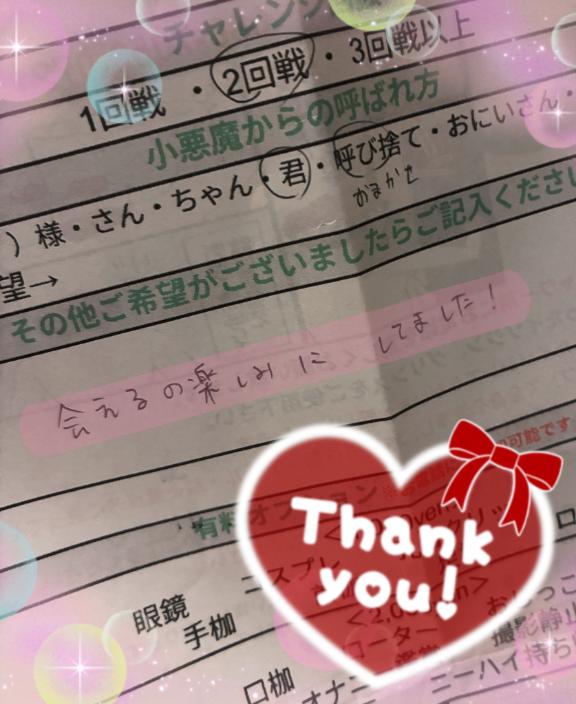 チャレンジ
1回戦 ・ 2回戦 ・ 3回戦以上
小悪魔からの呼ばれ方
) 様・さん・ちゃん・君・呼び捨て・おにいさん・
おまかせ
望→
その他ご希望がございましたらご記入ください
会えるの楽しみに してました!
可能です
有料オプション
Thank
you!
コスプレ
眼鏡
手枷
口枷
ローター
撮影静止
ニーハイ持ち
オナニ